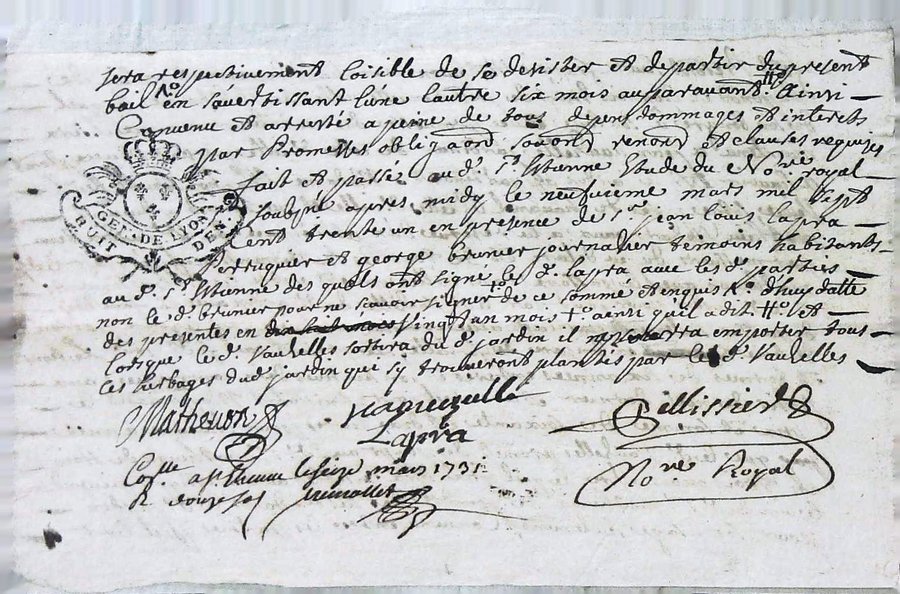 sera respectivement loisible de se desister et departir du present
bail #o en s'avertissant l'une l'autre six mois auparavant #o Ainsi
Convenu et arresté a peine de tous depens dommages et interets
par Promesses obliga'ons renon'ons et clauses requises
fait et passé au d. St Etienne Etude du No.re royal
soubsne apres midy le neufuieme mars mil sept
cent trente un en presence de Sr jean louis lapra
Perruquier et george brunier journalier temoins habitants
au d. St Etienne desquels ont signé le d. lapra avec les d. parties
non le d. brunier pour ne scavoir signer de ce sommé et enquis #o d'huy datte
des presentes en vingt un mois #o ainsi qu'il a dit #o et
Lorsque le d. Vauzelles sortira du d. jardin il emporter tous
les herbages dud. jardin que s'y trouveront plantés par le d. Vauzelles
GEN. DE LYON
HUIT DEN.
Matheuon
Lapra
Pellissier
No.re Royal
Con.lle a St Etienne le seize mars 1731
R. douze sols